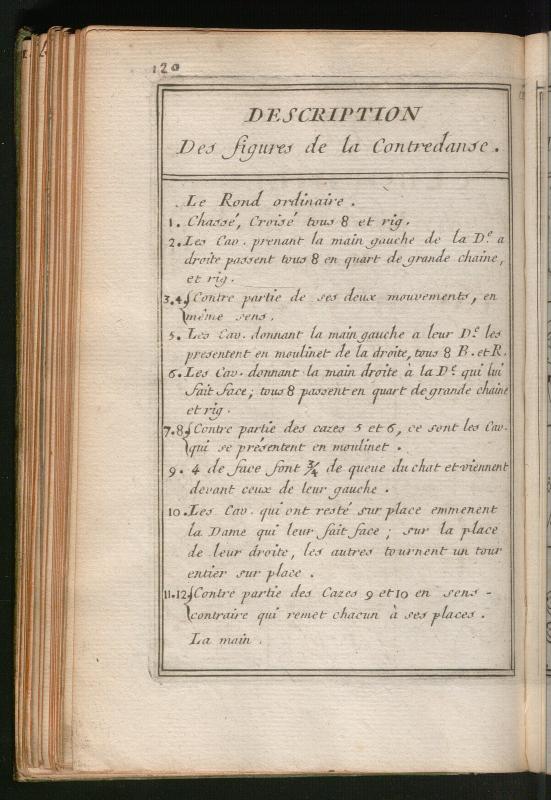 120
DESCRIPTION
Des figures de la Contredanse.
Le Rond ordinaire.
1. Chassé, Croisé tous 8 et rig.
2. Les Cav. prenant la main gauche de la D.e a
droite passent tous 8 en quart de grande chaine,
et rig.
3.4. Contre partie de ses deux mouvements, en
même sens.
5. Les Cav. donnant la main gauche a leur D.e les
presentent en moulinet de la droite, tous 8 B. et R.
6. Les Cav. donnant la main droite à la D.e qui lui
fait face; tous 8 passent en quart de grande chaine
et rig.
7.8. Contre partie des cazes 5 et 6, ce sont les Cav.
qui se présentent en moulinet.
9. 4 de face font 3/4 de queue du chat et viennent
devant ceux de leur gauche.
10. Les Cav. qui ont resté sur place emmenent
la Dame qui leur fait face; sur la place
de leur droite, les autres tournent un tour
entier sur place.
11.12. Contre partie des Cazes 9 et 10 en sens -
contraire qui remet chacun à ses places.
La main.